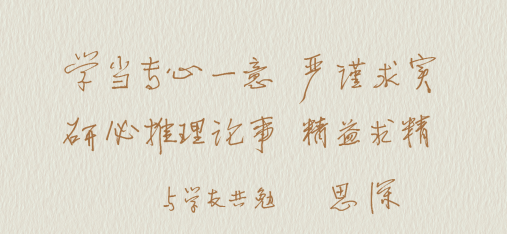 学当专心一意 严谨求实
研必推理论事 精益求精
与学友共勉 思深